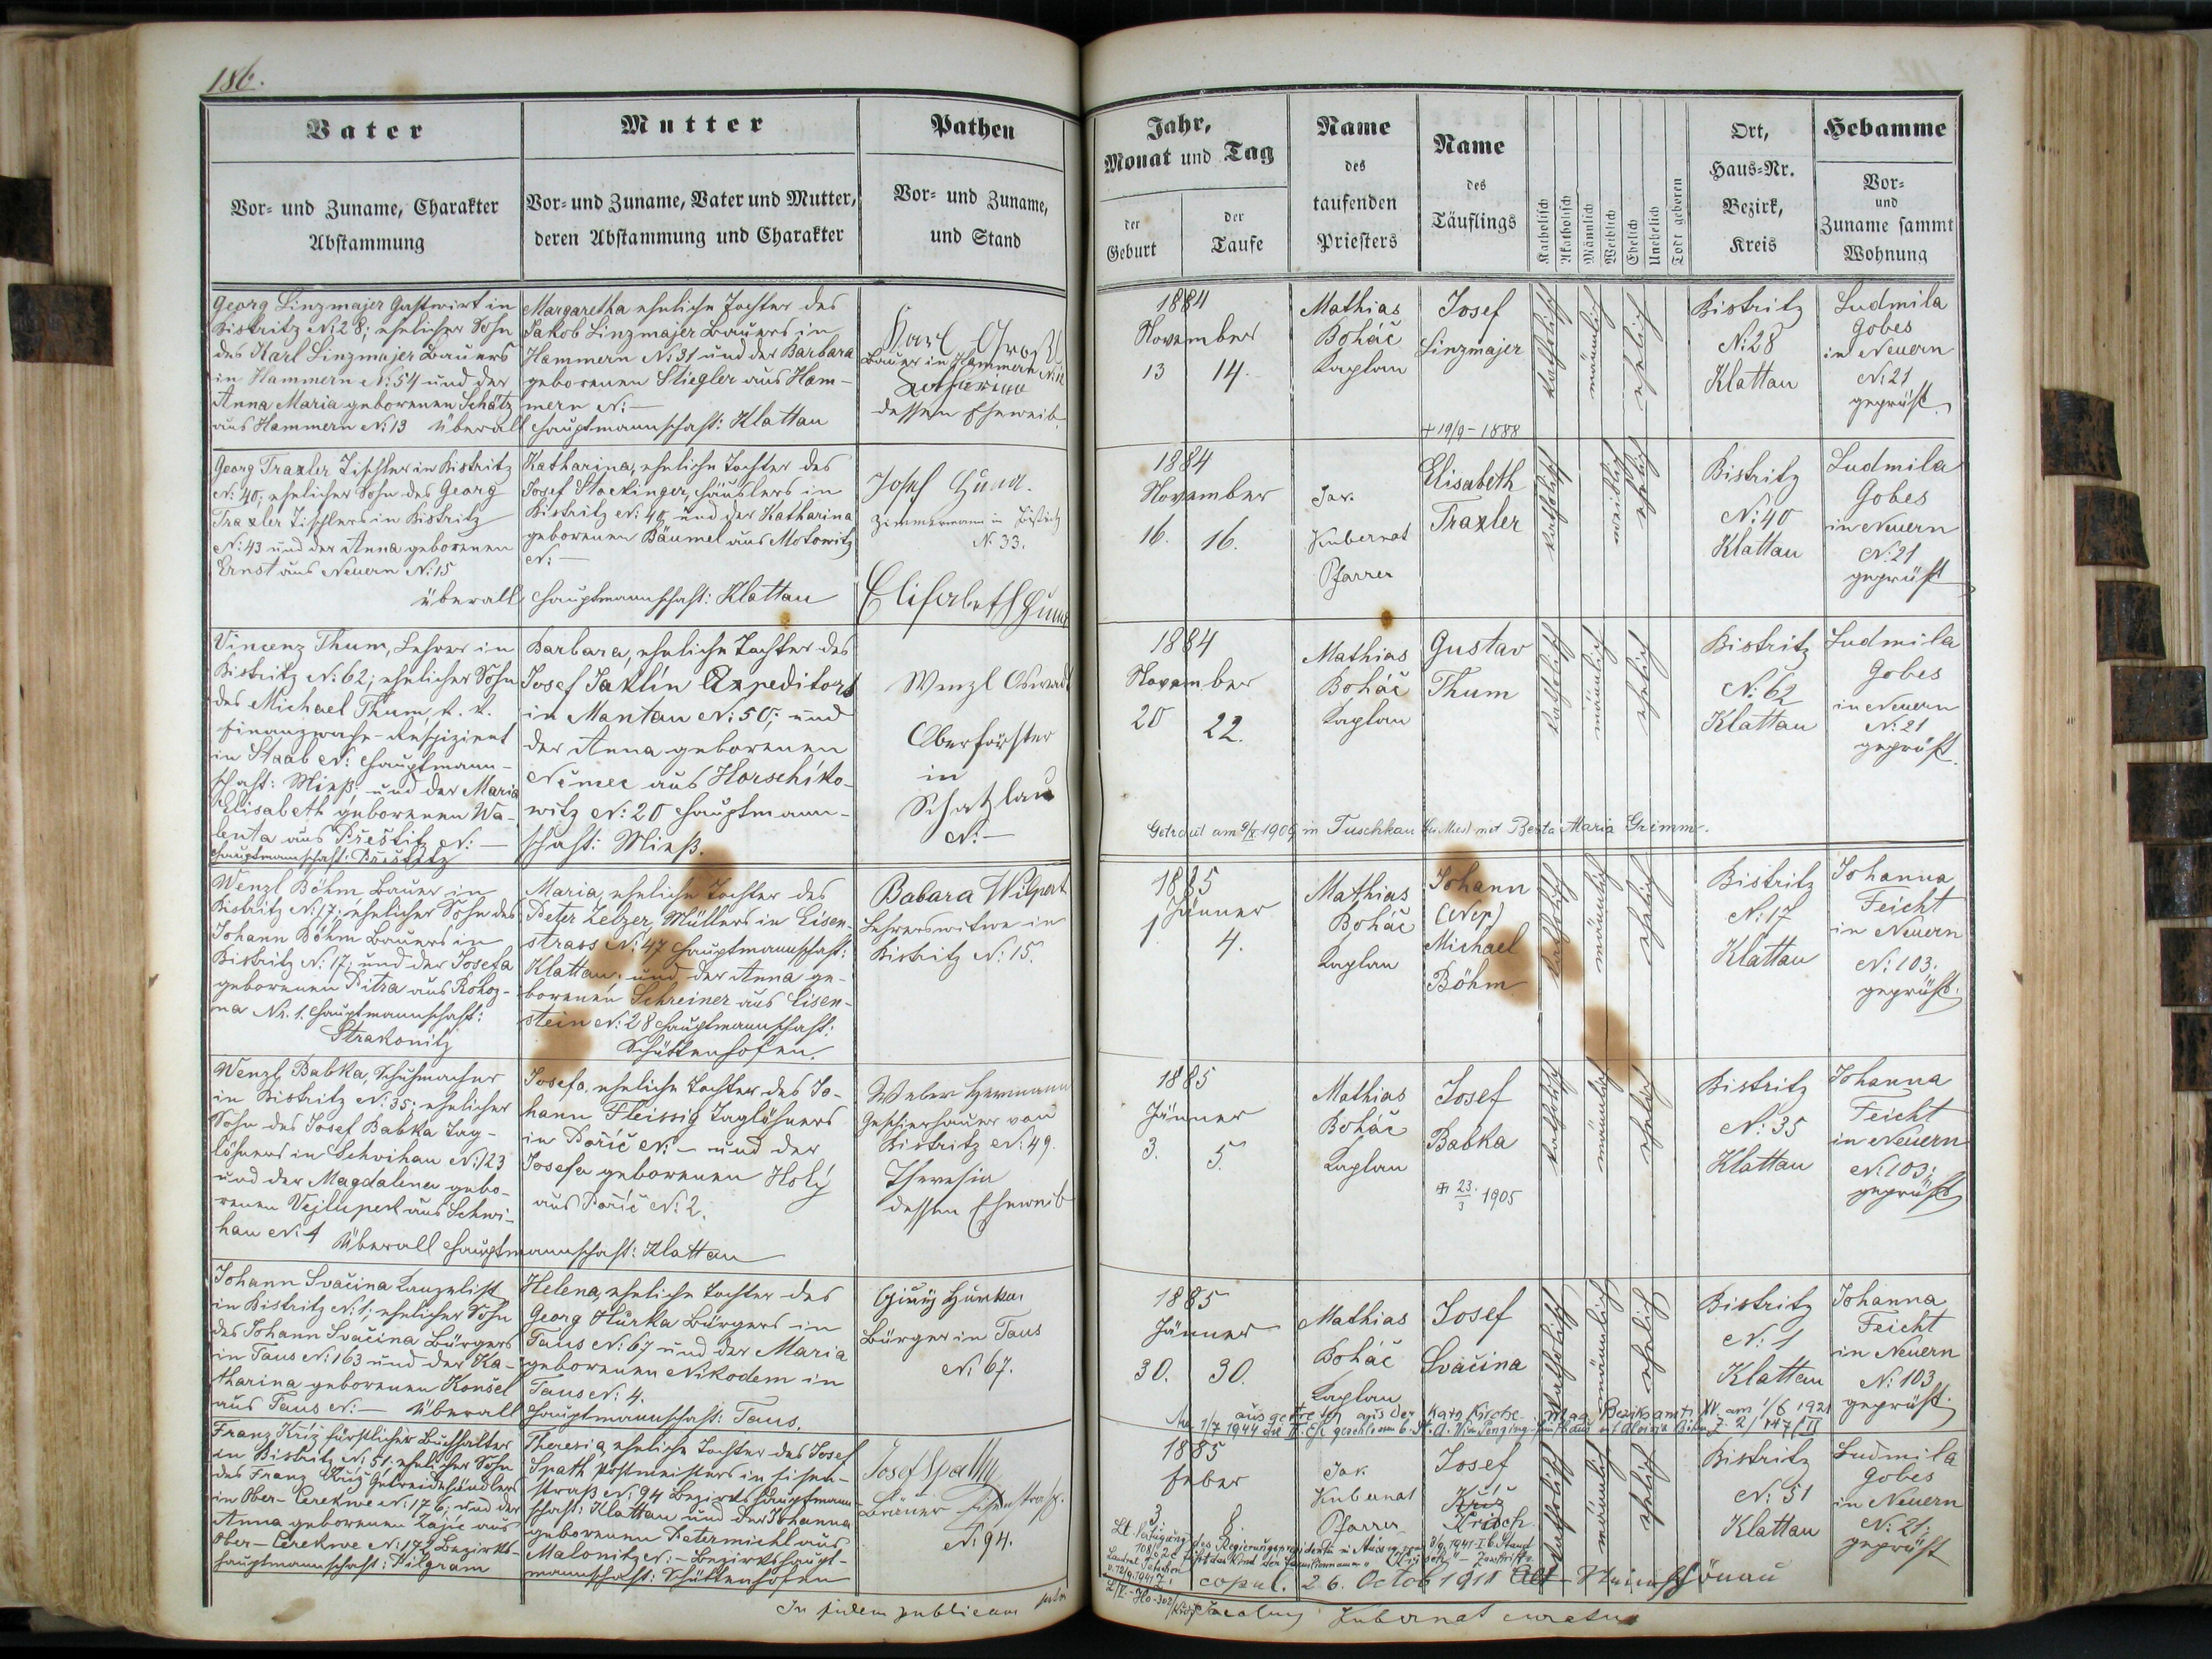 186.
Vater
Mutter
Pathen
Vor- und Zuname, Charakter
Abstammung
Vor- und Zuname, Vater und Mutter,
deren Abstammung und Charakter
Vor- und Zuname,
und Stand
Georg Linzmajer Gastwirt in
Bistritz N: 28; ehelicher Sohn
des Karl Linzmajer Bauers
in Hammern N: 54 und der
Anna Maria geborenen Schätz
aus Hammern N: 13 überall
Margaretha eheliche Tochter des
Jakob Linzmajer Bauers in
Hammern N: 31 und der Barbara
geborenen Stiegler aus Ham-
mern N: —
Hauptmannschaft: Klattau
Karl
Bauer in Hammern
Katharina
dessen Eheweib
Georg Traxler Tischler in Bistritz
N: 40; ehelicher Sohn des Georg
Traxler Tischlers in Bistritz
N: 43 und der Anna geborenen
Ernst aus Neuern N: 15
überall
Katharina, eheliche Tochter des
Josef Stockinger, Häuslers in
Bistritz N: 40 und der Katharina
geborenen Bäumel aus Motowitz
N: —
Hauptmannschaft: Klattau
Josef Hund.
Zimmermann in Bistritz
N. 33.
Elisabeth Hund
Vincenz Thum, Lehrer in
Bistritz N: 62; ehelicher Sohn
des Michael Thum, k. k.
Finanzwach-Respizient
in Staab N: Hauptmann-
schaft: Mieß und der Maria
Elisabeth geborenen Wa-
lenta aus Přestitz N: —
Hauptmannschaft: Přestitz
Barbara, eheliche Tochter des
Josef Jaklin Expeditors
in Mantau N: 50; und
der Anna geborenen
Němec aus Horschiko-
witz N: 20 Hauptmann-
schaft: Mieß.
Wenzl
Oberförster
in
Schatzlau
N: —
Wenzl Böhm Bauer in
Bistritz N: 17; ehelicher Sohn des
Johann Böhm Bauers in
Bistritz N: 17; und der Josefa
geborenen Pitra aus Rohoz-
na Nr. 1. Hauptmannschaft:
Strakonitz
Maria, eheliche Tochter des
Peter Zelzer, Müllers in Eisen-
strass N: 47 Hauptmannschaft:
Klattau, und der Anna ge-
borenen Schreiner aus Eisen-
stein N: 28 Hauptmannschaft:
Schüttenhofen.
Babara Wilpert
Lehrerswitwe in
Bistritz N: 15.
Wenzl Babka, Schuhmacher
in Bistritz N: 35; ehelicher
Sohn des Josef Babka Tag-
löhners in Schwihau N: 123
und der Magdalena gebo-
renen Vejlupek aus Schwi-
hau N: 4 Überall Hauptmannschaft: Klattau
Josefa, eheliche Tochter des Jo-
hann Fleissig Taglöhners
in Poříč N: — und der
Josefa geborenen Holý
aus Poříč N: 2.
Weber Hermann
von
Bistritz N: 49.
Theresia
dessen Eheweib
Johann Svačina Kanzelist
in Bistritz N: 1; ehelicher Sohn
des Johann Svačina Bürgers
in Taus N: 163 und der Ka-
tharina geborenen Konšel
aus Taus N: — Überall
Helena, eheliche Tochter des
Georg Hurka Bürgers in
Taus N: 67 und der Maria
geborenen Nikodem in
Taus N: 4.
Hauptmannschaft: Taus.
Hurka
Bürger in Taus
N. 67.
Franz Kriz fürstlicher Buchhalter
in Bistritz N: 51; ehelicher Sohn
des Franz Kriz Getreidehändlers
in Ober-Cerekwe N: 176; und der
Anna geborenen Zajíc aus
Ober-Cerekwe N: Bezirks-
hauptmannschaft: Pilgram
Theresia, eheliche Tochter des Josef
Spath Postmeisters in Eisen-
straß N: 94 Bezirkshauptmann-
schaft: Klattau und der Johanna
geborenen Petermichl aus
Malonitz N: — Bezirkshaupt-
mannschaft: Schüttenhofen
Josef Spath
Bräuer Eisenstraß.
N. 94.
In fidem publicam
Jahr,
Monat und Tag
der
Geburt
der
Taufe
Name
des
taufenden
Priesters
Name
des
Täuflings
Katholisch
Akatholisch
Männlich
Weiblich
Ehelich
Unehelich
Todt geboren
Ort,
Haus-Nr.
Bezirk,
Kreis
Hebamme
Vor-
und
Zuname sammt
Wohnung
1884
November
13 14.
Mathias
Boháč
Kaplan
Josef
Linzmajer
+ 19/9 - 1888
katholisch
männlich
ehelich
Bistritz
N: 28
Klattau
Ludmila
Gobes
in Neuern
N: 21
geprüft.
1884
November
16. 16.
Jak.
Kubernat
Pfarrer
Elisabeth
Traxler
katholisch
weiblich
ehelich
Bistritz
N: 40
Klattau
Ludmila
Gobes
in Neuern
N. 21
geprüft
1884
November
20 22.
Mathias
Boháč
Kaplan
Gustav
Thum
katholisch
männlich
ehelich
Bistritz
N: 62
Klattau
Ludmila
Gobes
in Neuern
N: 21
geprüft.
Getraut am 9/X 1909 in Tuschkau mit Berta Maria Grimm.
1885
Jänner
1 4.
Mathias
Boháč
Kaplan
Johann
(Nep)
Michael
Böhm
katholisch
männlich
ehelich
Bistritz
N: 17
Klattau
Johanna
Feicht
in Neuern
N: 103.
geprüft.
1885
Jänner
3. 5.
Mathias
Boháč
Kaplan
Josef
Babka
+ 23/3 1905
katholisch
männlich
ehelich
Bistritz
N: 35
Klattau
Johanna
Feicht
in Neuern
N: 103:
geprüft
1885
Jänner
30. 30.
Mathias
Boháč
Kaplan
Josef
Svačina
katholisch
männlich
ehelich
Bistritz
N: 1
Klattau
Johanna
Feicht
in Neuern
N: 103
geprüft.
ausgetreten aus der Kath Kirche. Mag. Bezirksamt XV. am 1/6 1921
1/7 1944 die II. Ehe geschlossen b. St. A. Wien Penzing
1885
Feber
3. 8.
Jak.
Kubernat
Pfarrer
Josef
Kriz
Krisch
katholisch
männlich
ehelich
Bistritz
N: 51
Klattau
Ludmila
Gobes
in Neuern
N: 21.
geprüft
Lt. Verfügung des Regierungspräsidenten in Aussig
Landrat Tetschen führt das Kind den Familiennamen
copul. 26. Octob 1911
Jacobus Kubernat curatus